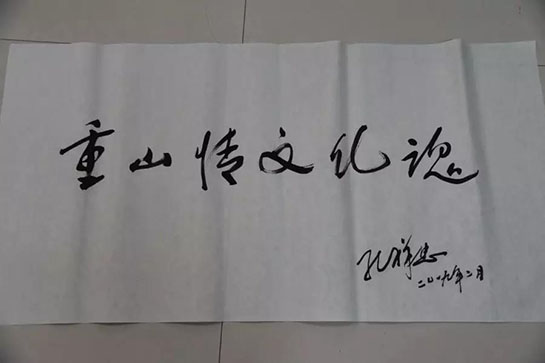 重山情文化魂
孔祥忠
二〇一九年二月